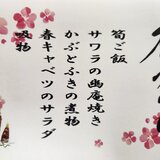 筍ご飯
サワラの幽庵焼き
かぶとふきの煮物
春キャベツのサラダ
汲物